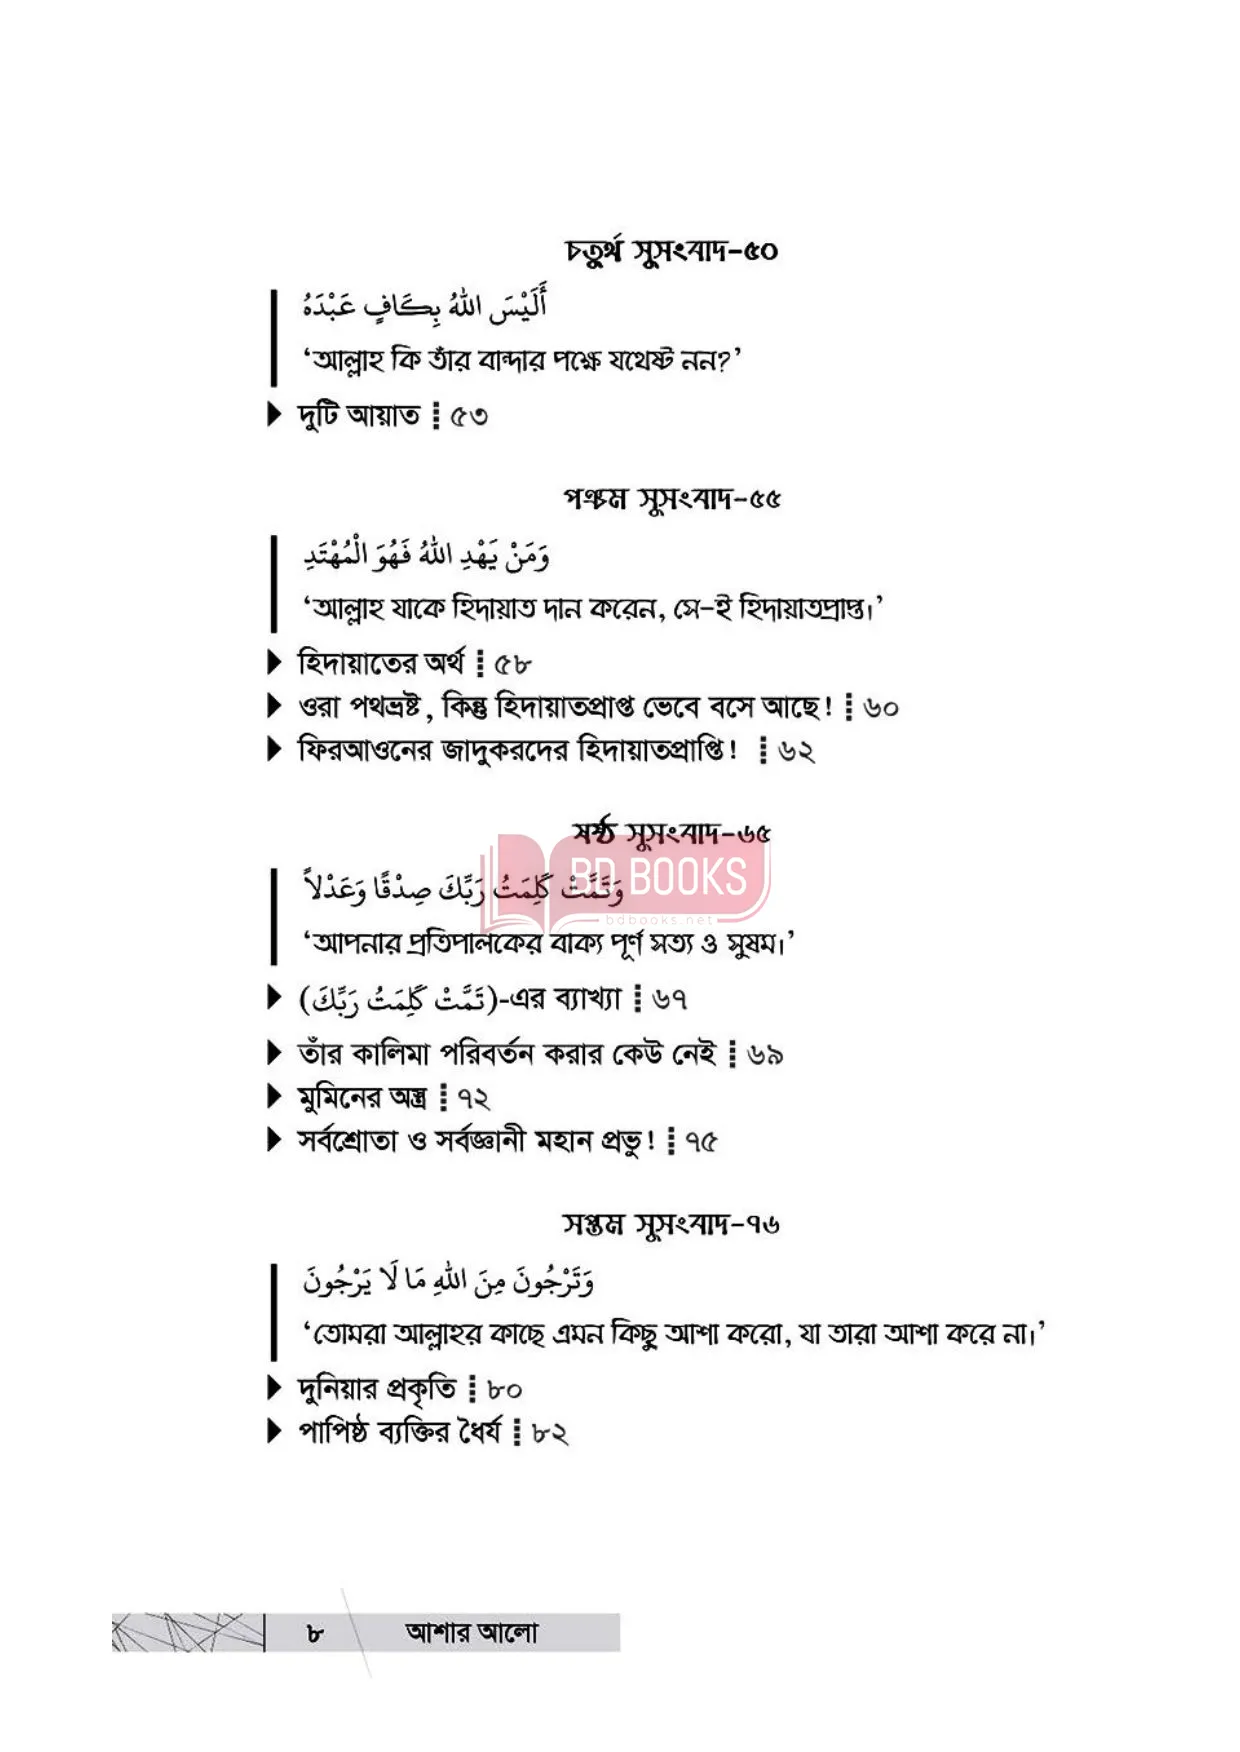 চতুর্থ সুসংবাদ-৫০
أَلَيْسَ اللهُ بِكَافٍ عَبْدَهُ
‘আল্লাহ কি তাঁর বান্দার পক্ষে যথেষ্ট নন?’
দুটি আয়াত ⁞ ৫৩
পঞ্চম সুসংবাদ-৫৫
وَمَنْ يَهْدِ اللهُ فَهُوَ الْمُهْتَدِ
‘আল্লাহ যাকে হিদায়াত দান করেন, সে-ই হিদায়াতপ্রাপ্ত।’
হিদায়াতের অর্থ ⁞ ৫৮
ওরা পথভ্রষ্ট, কিন্তু হিদায়াতপ্রাপ্ত ভেবে বসে আছে! ⁞ ৬০
ফিরআওনের জাদুকরদের হিদায়াতপ্রাপ্তি! ⁞ ৬২
ষষ্ঠ সুসংবাদ-৬৫
BD BOOKS
وَتَمَّتْ كَلِمَتُ رَبِّكَ صِدْقًا وَعَدْلاً
bdbooks.net
‘আপনার প্রতিপালকের বাক্য পূর্ণ সত্য ও সুষম।’
(تَمَّتْ كَلِمَتُ رَبِّكَ)-এর ব্যাখ্যা ⁞ ৬৭
তাঁর কালিমা পরিবর্তন করার কেউ নেই ⁞ ৬৯
মুমিনের অস্ত্র ⁞ ৭২
সর্বশ্রোতা ও সর্বজ্ঞানী মহান প্রভু! ⁞ ৭৫
সপ্তম সুসংবাদ-৭৬
وَتَرْجُونَ مِنَ اللهِ مَا لَا يَرْجُونَ
‘তোমরা আল্লাহর কাছে এমন কিছু আশা করো, যা তারা আশা করে না।’
দুনিয়ার প্রকৃতি ⁞ ৮০
পাপিষ্ঠ ব্যক্তির ধৈর্য ⁞ ৮২
৮ আশার আলো